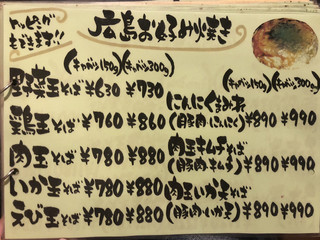 トッピングが
もできます!!
広島お好み焼き
(キャベツ150g)(キャベツ300g)
野菜玉そば ¥630 ¥730
鶏玉そば ¥760 ¥860
肉玉そば ¥780 ¥880
いか玉そば ¥780 ¥880
えび玉そば ¥780 ¥880
(キャベツ150g)(キャベツ300g)
にんにく玉そば
(豚肉・にんにく) ¥890 ¥990
肉玉キムチそば
(豚肉・キムチ) ¥890 ¥990
肉玉いか天そば
(豚肉・いか天) ¥890 ¥990